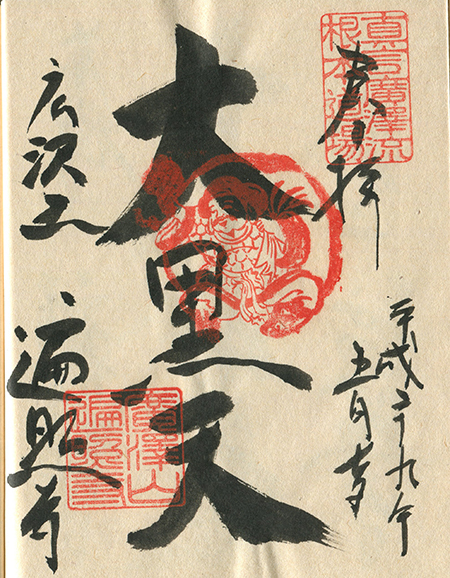 真言廣澤流
根本道場
奉拝
平成二十九年
五月
大黒天
広沢山
遍照寺
廣澤山
遍照寺